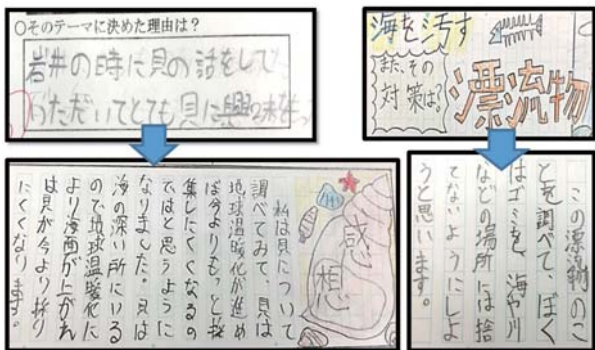 ○そのテーマに決めた理由は？
岩井の時に貝の話をして
いただいてとても貝に興味をもっ
感想
私は貝について
調べてみて、貝は
地球温暖化が進め
ば今よりもっと採
集しにくくなるの
ではと思うように
なりました。貝は
海の深い所にいる
ので地球温暖化に
より海面が上がれ
ば貝が今より採り
にくくなります。
海を汚す
漂流物
また、その
対策は？
この漂流物のこ
とを調べて、ぼく
はゴミを、海や川
などの場所には捨
てないようにしよ
うと思います。